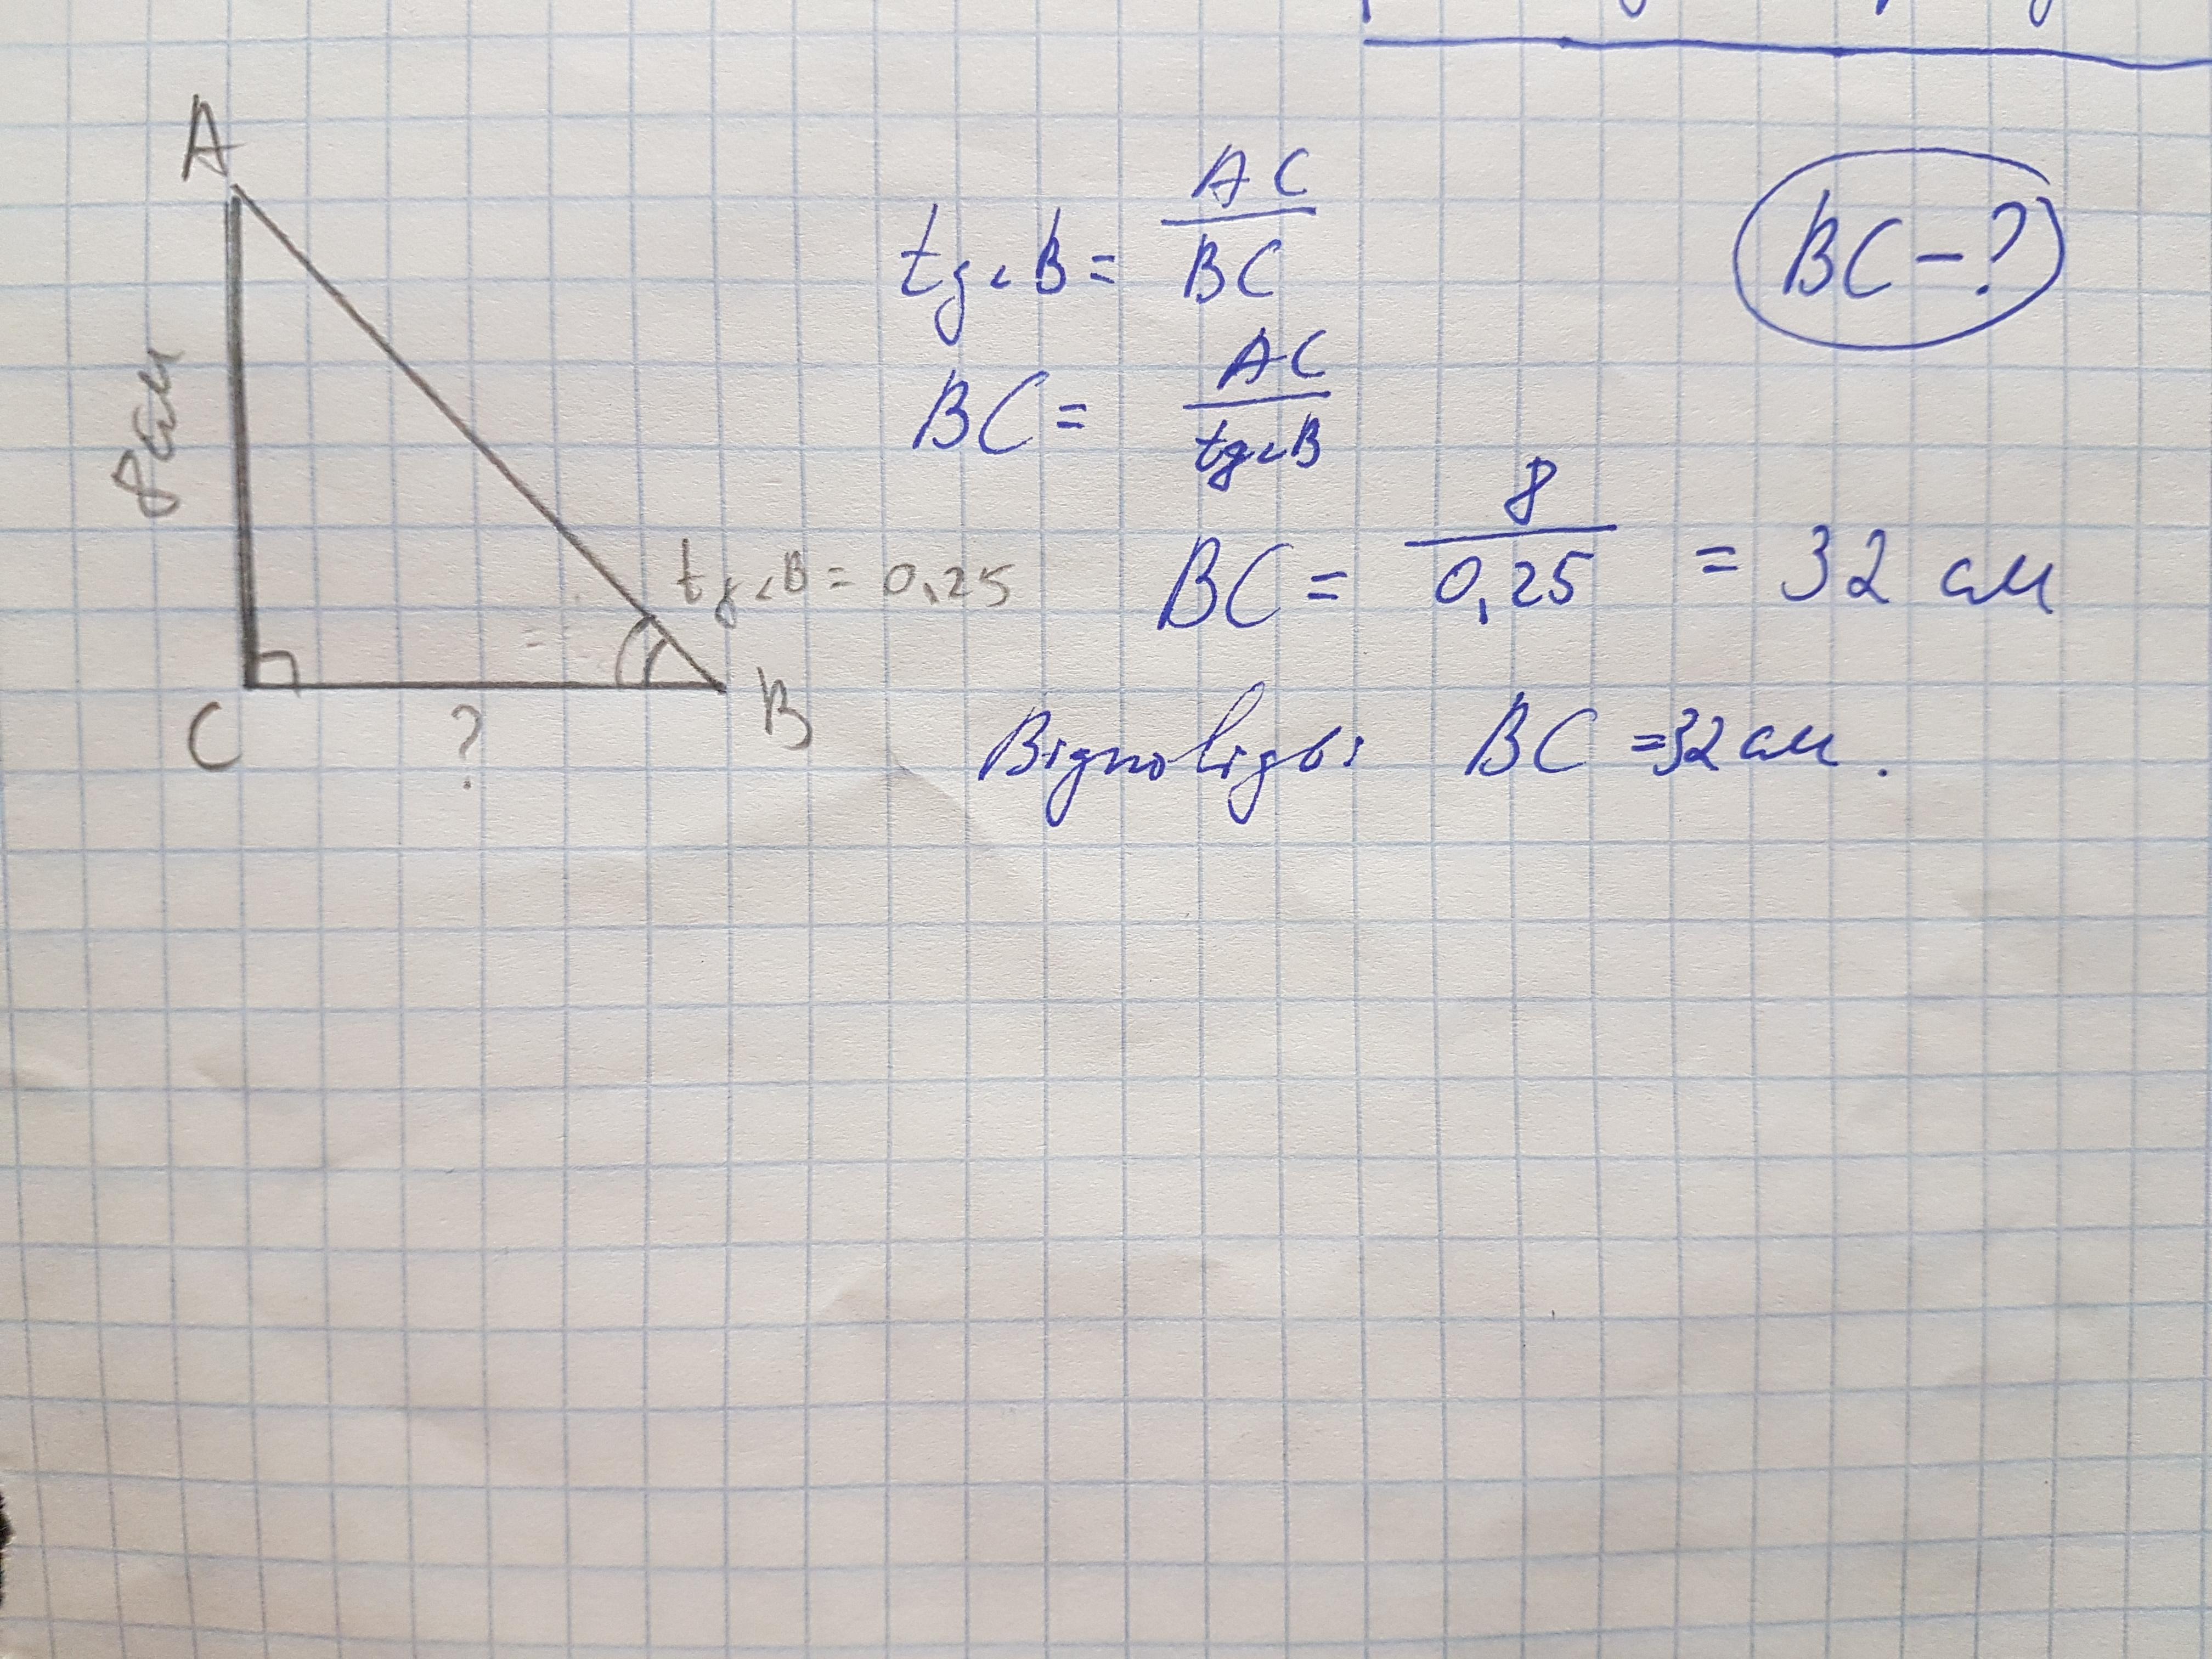 A
8см
C
?
B
tg<B = 0,25
tg<B = AC / BC
BC - ?
BC = AC / tg<B
BC = 8 / 0,25 = 32 см
Відповідь: BC = 32 см.